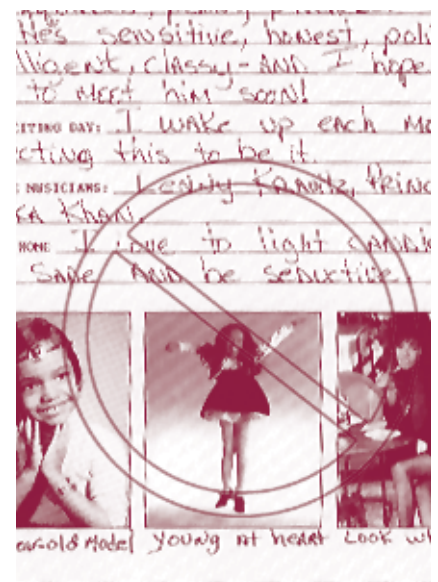 He's sensitive, honest, poli
lligent, classy-AND I hope
to meet him soon!
CITING DAY: I wake up each Mo
cting this to be it.
MUSICIANS: Lenny Kravitz, Princ
KA KHAN.
HOME I love to light candle
Sade AND be seductive.
ear-old Model Young At heart Look wh